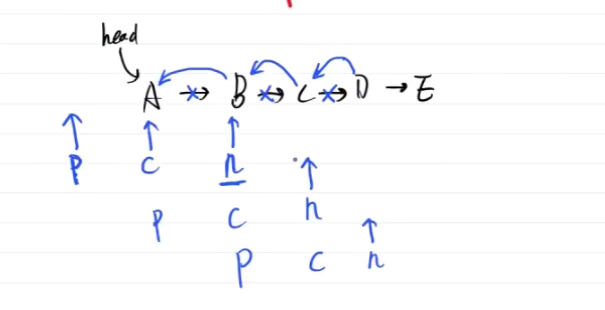 head
A → B → C → D → E
p c n
p c n
p c n